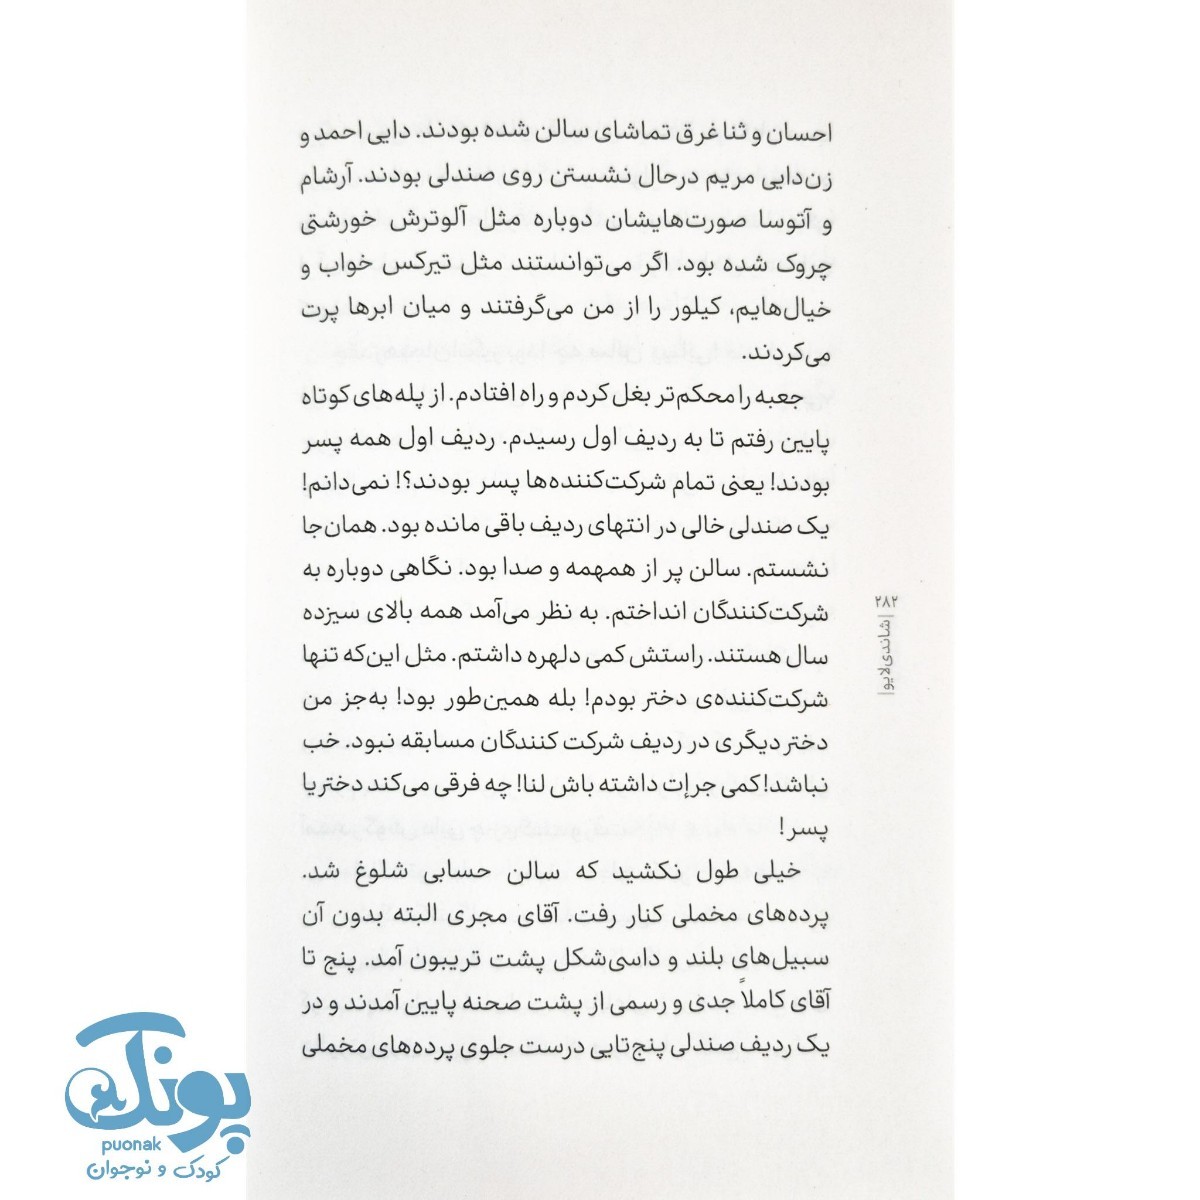 احسان و ثنا غرق تماشای سالن شده بودند. دایی احمد و
زن‌دایی مریم درحال نشستن روی صندلی بودند. آرشام
و آتوسا صورت‌هایشان دوباره مثل آلوترش خورشتی
چروک شده بود. اگر می‌توانستند مثل تیرکس خواب و
خیال‌هایم، کیلور را از من می‌گرفتند و میان ابرها پرت
می‌کردند.
جعبه را محکم‌تر بغل کردم و راه افتادم. از پله‌های کوتاه
پایین رفتم تا به ردیف اول رسیدم. ردیف اول همه پسر
بودند! یعنی تمام شرکت‌کننده‌ها پسر بودند؟! نمی‌دانم!
یک صندلی خالی در انتهای ردیف باقی مانده بود. همان‌جا
نشستم. سالن پر از همهمه و صدا بود. نگاهی دوباره به
شرکت‌کنندگان انداختم. به نظر می‌آمد همه بالای سیزده
سال هستند. راستش کمی دلهره داشتم. مثل این‌که تنها
شرکت‌کننده‌ی دختر بودم! بله همین‌طور بود! به‌جز من
دختر دیگری در ردیف شرکت کنندگان مسابقه نبود. خب
نباشد! کمی جرإت داشته باش لنا! چه فرقی می‌کند دختر یا
پسر!
خیلی طول نکشید که سالن حسابی شلوغ شد.
پرده‌های مخملی کنار رفت. آقای مجری البته بدون آن
سبیل‌های بلند و داسی‌شکل پشت تریبون آمد. پنج تا
آقای کاملاً جدی و رسمی از پشت صحنه پایین آمدند و در
یک ردیف صندلی پنج‌تایی درست جلوی پرده‌های مخملی
۲۸۲
|شاندی‌لایو|
پونک
puonak
کودک و نوجوان